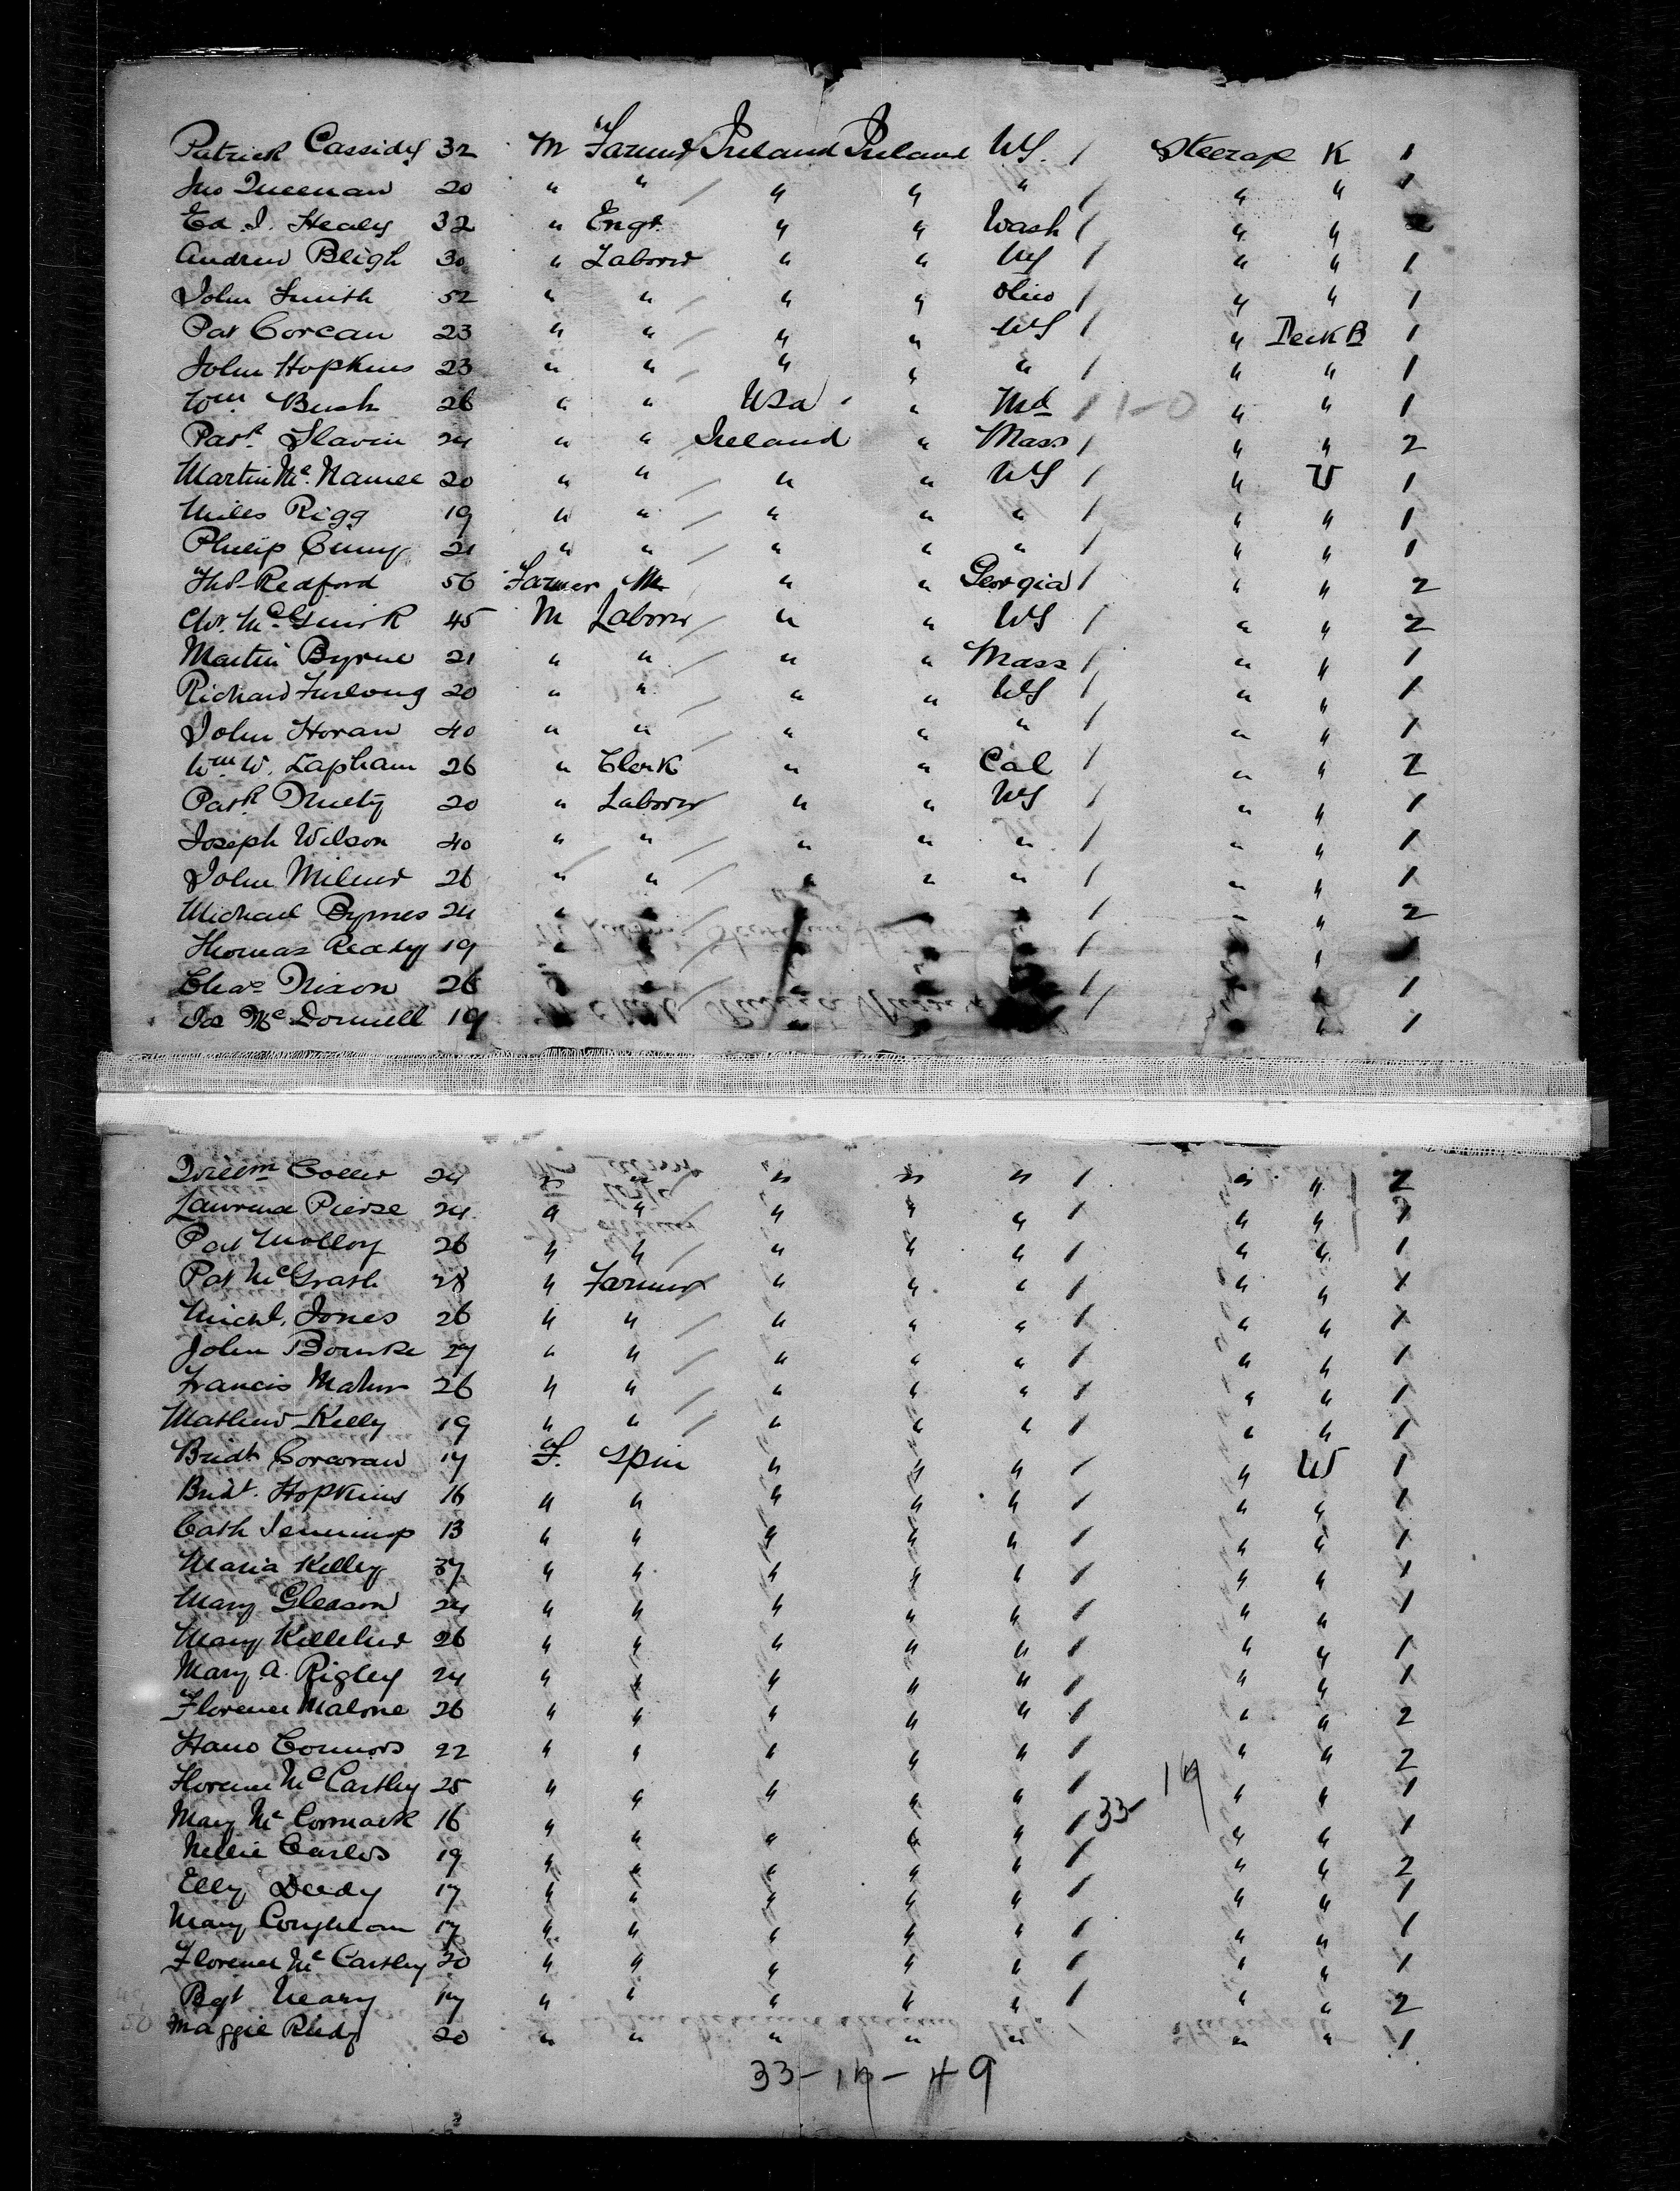 Patrick Cassidy 32 M Farmer Ireland Ireland NY. / Steerage K 1
Jno Queenan 20 " " / " " " / " " 1
Ed. J. Healy 32 " Engr. " " Wash / " "
Andrew Bligh 30 " Laborer " " NY / " " 1
John Smith 52 " " / " " Ohio / " " 1
Pat Corcan 23 " " / " " NY / " Deck B 1
John Hopkins 23 " " / " " " / " " 1
Wm. Bush 26 " " USa " Md / 1-0 " " 1
Patk. Slavin 24 " " Ireland " Mass / " " 2
Martin Mc. Namee 20 " " / " " NY / " U 1
Miles Rigg 19 " " / " " " / " " 1
Philip Cuny 21 " " / " " " / " " 1
Thos Redford 56 Farmer M " " Georgia / " " 2
Chr. McGuirk 45 M Laborer / " " NY / " " 2
Martin Byrne 21 " " / " " Mass / " " 1
Richard Furlong 20 " " / " " NY / " " 1
John Horan 40 " " / " " " / " " 1
Wm. W. Lapham 26 " Clerk " " Cal / " " 2
Patk. Nulty 20 " Laborer " " NY / " " 1
Joseph Wilson 40 " " / " " " / " " 1
John Milner 26 " " / " " " / " " 1
Michael Byrnes 24 " " / " " " / " " 2
Thomas Ready 19 " " " " " / " "
Chas Nixon 26 " " " " / " " 1
Jas Mc. Donnell 19 " " " / " " 1
Willm Coller 24 " " " " " / " " 2
Lawrence Pierse 24 " " " " " / " " 1
Pat Molloy 26 " " / " " " / " " 1
Pat McGrath 28 " Farmer " " " / " " 1
Michl. Jones 26 " " / " " " / " " 1
John Bourke 27 " " / " " " / " " 1
Francis Maher 26 " " / " " " / " " 1
Mathew Kelly 19 " " / " " " / " " 1
Bridt Corcoran 17 F. Spin " " " / " W 1
Bridt. Hopkins 16 " " " " " / " " 1
Cath Jennings 13 " " " " " / " " 1
Maria Kelley 37 " " " " " / " " 1
Mary Gleason 24 " " " " " / " " 1
Mary Killeher 26 " " " " " / " " 1
Mary A. Rigley 24 " " " " " / " " 1
Florence Malone 26 " " " " " / " " 2
Hano Connors 22 " " " " " / " " 2
Florence McCarthy 25 " " " " " / 17 " " 1
Mary Mc Cormack 16 " " " " " / 33- " " 1
Nellie Carlos 19 " " " " " / " " 2
Elly Deedy 17 " " " " " / " " 1
Mary Coughlan 17 " " " " " / " " 1
Florence Mc Carthy 20 " " " " " / " " 1
Bgt Neary 17 " " " " " / " " 2
Maggie Reidy 20 " " " " " / " " 1
33-17-49